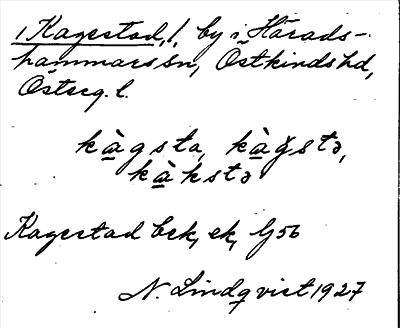 1 Kagestad, /, by i Härads-
hammars sn, Östkinds hd,
Österg. l.
kàgsta, kàg̊stə,
kàkstə
Kagestad bek, ek, G56
N. Lindqvist 1927